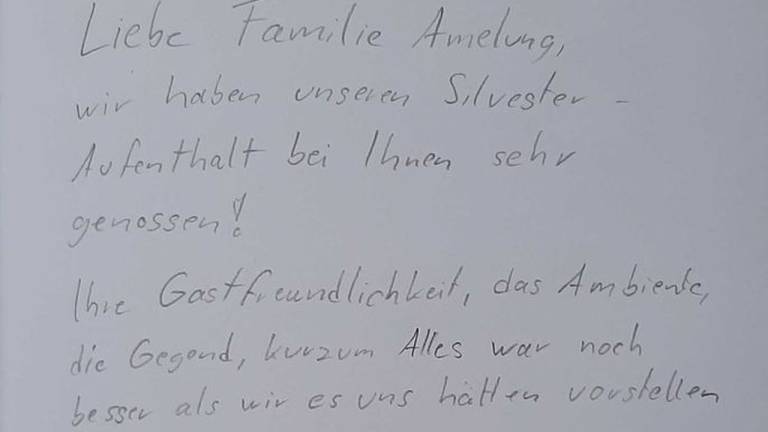 Liebe Familie Amelung,
wir haben unseren Silvester -
Aufenthalt bei Ihnen sehr
genossen!
Ihre Gastfreundlichkeit, das Ambiente,
die Gegend, kurzum Alles war noch
besser als wir es uns hätten vorstellen